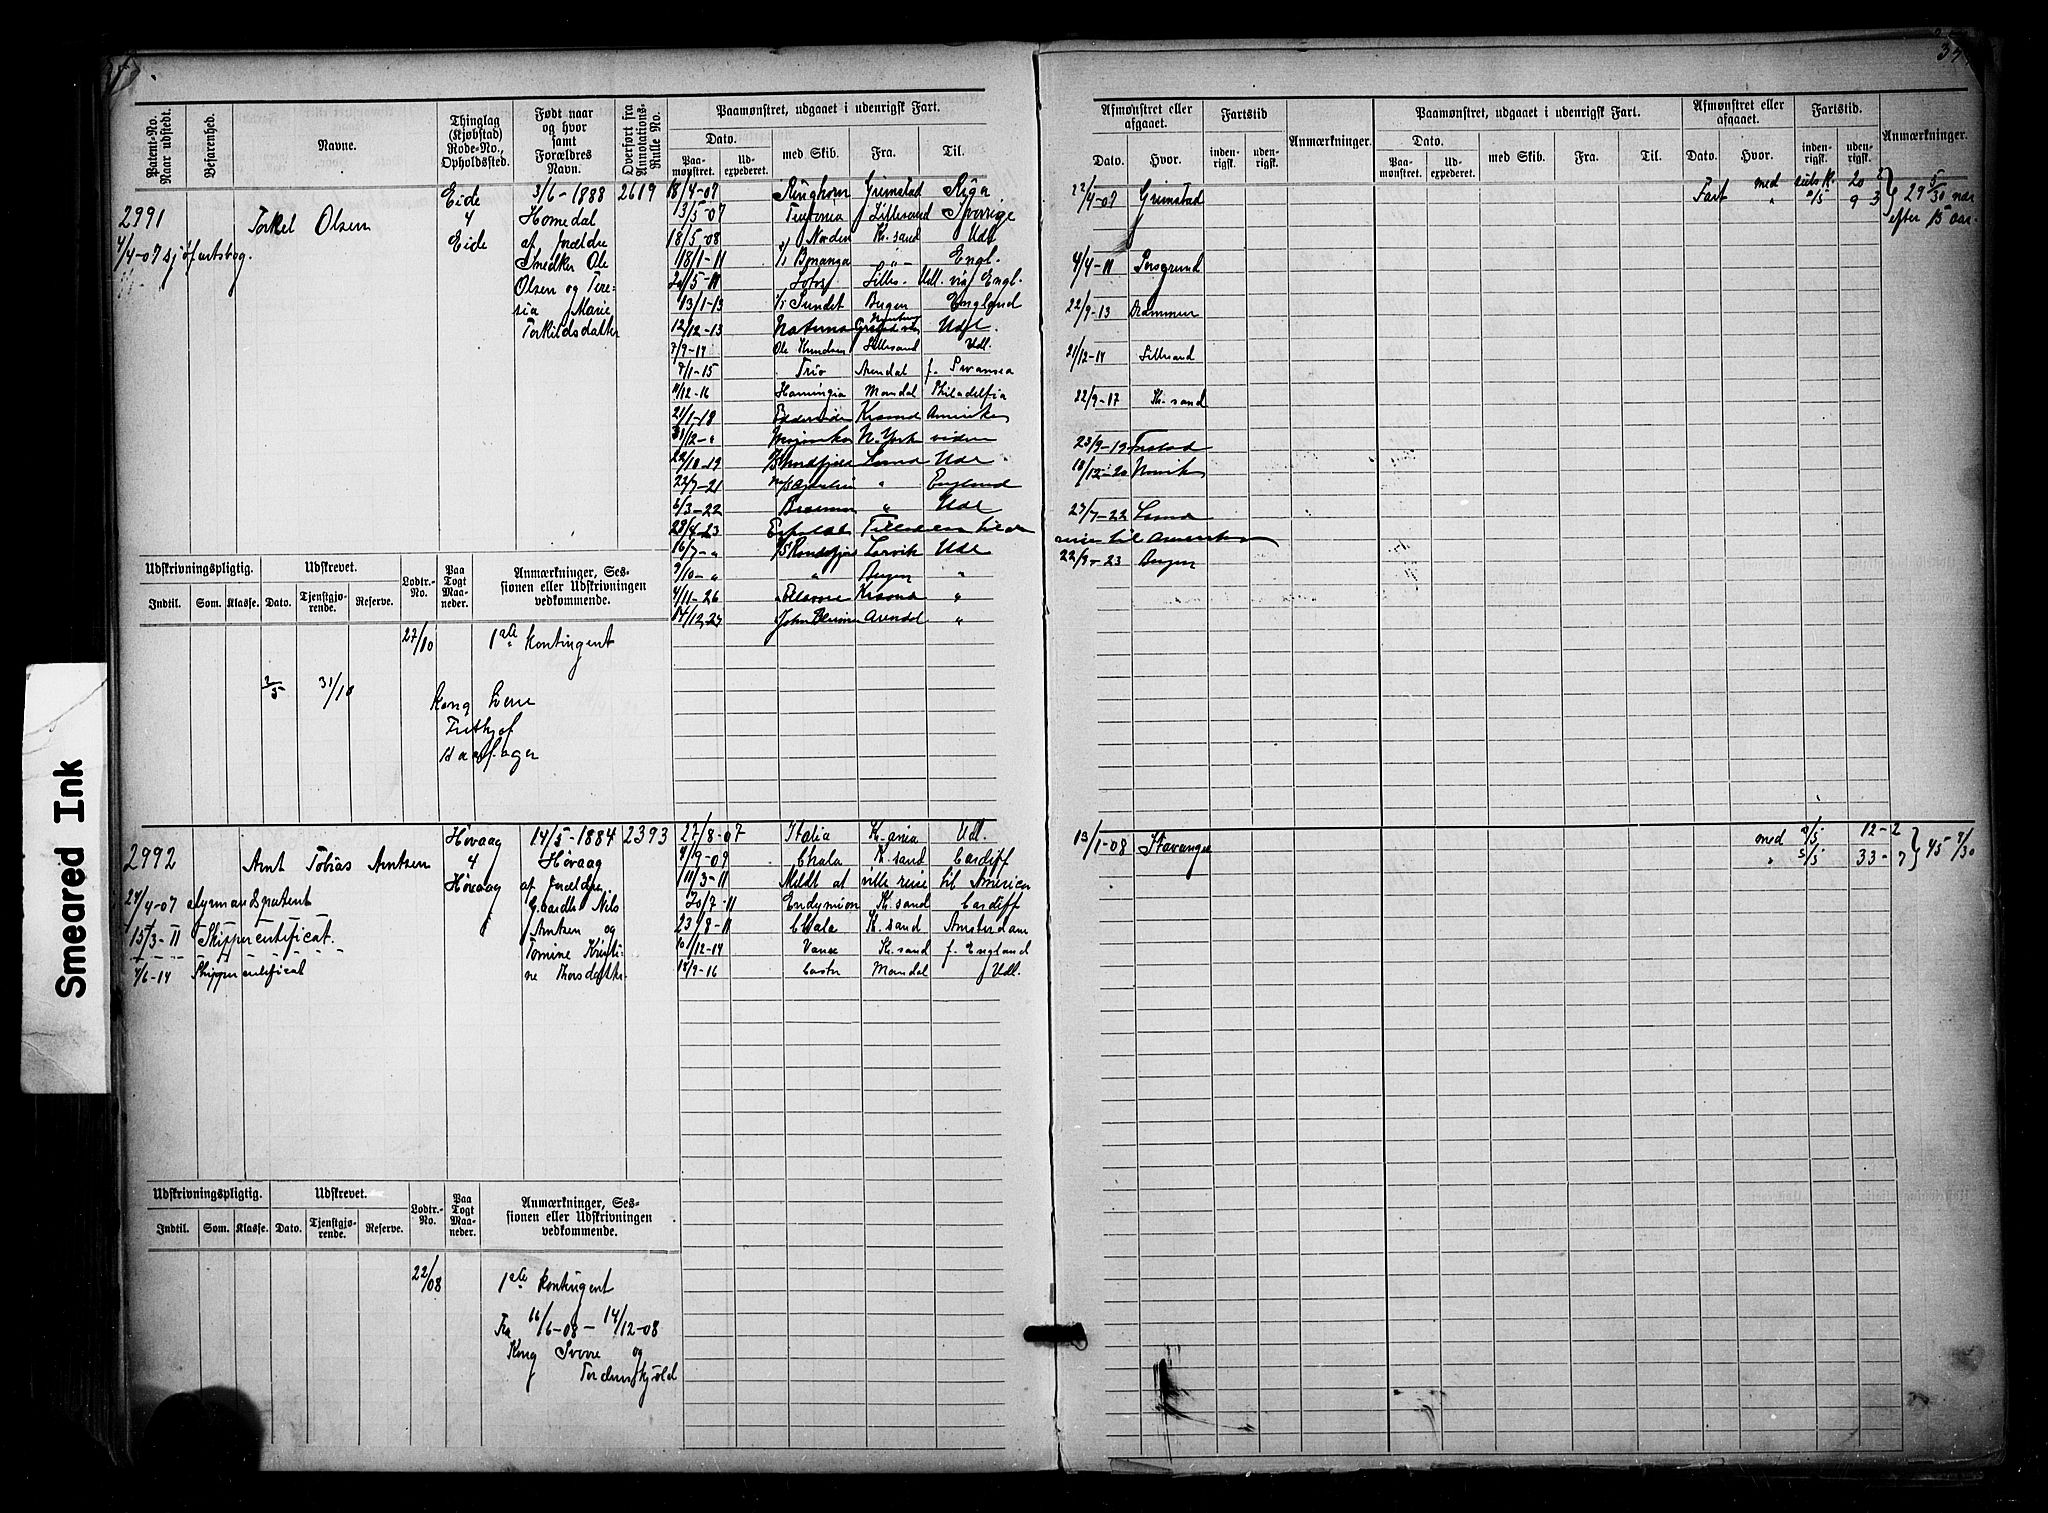 Patent-No. Naar udstedt.
Befarenhed.
Navne.
Thinglag (Kjøbstad) Rode-No., Opholdssted.
Født naar og hvor samt Forældres Navn.
Overført fra Annotations-Rulle No.
Paamønstret, udgaaet i udenrigsk Fart.
Dato.
Paamønstret.
Udexpederet.
med Skib.
Fra.
Til.
2991
4/4-07 sjøfartsbog.
Torkel Olsen
Eide
4
Eide
3/6-1888
Homedal
af forældre
Snedker Ole
Olsen og Tere-
sia Marie
Torkildsdatter
2619
18/4-07 Ringhorn Grimstad Riga
13/5-07 Teutonia Lillesand Sverige
18/5-08 Norden Kr.sand Udl
18/1-11 Bonanza " - Engl.
20/5-11 Lilles. Udl. via Engl.
13/1-13 Sundet Bergen England
12/12-13 Udl.
7/9-14 Ole Knudsen Lillesand Udl.
9/1-15 Trio Arendal f. Swansea
11/12-16 Hamingia Mandal Philadelfia
21/1-18 Krsand Amerika
31/12-" N.York videre
22/10-19 Udl
22/7-21 " England
6/3-22 " Udl
28/4-23
16/7-" Larvik Udl
9/10-" " Bergen "
4/11-26 Krsand "
14/12-27 Arendal "
Udskrivningspligtig.
Udskrevet.
Lodtr.-No.
Paa Togt Maaneder.
Anmærkninger, Sessionen eller Udskrivningen vedkommende.
Indtil. Som. Klasse. Dato. Tjenstgjørende. Reserve.
27/10 1ste kontingent
2/5 31/10
Kong Sverre
Frithjof
Haarfager
2992
Arnt Tobias Arntsen
24/4-07 styrmandspatent
15/3-11 Skippercertificat.
4/6-14 Skippercertificat
Høvaag
4
Høvaag
14/5-1884
Høvaag
af forældre
Gaardbr Nils
Arntsen og
Tomine Kristi-
ne Thorsdatter
2393
27/8-07 Italia K.ania Udl.
4/9-09 Chala K.sand Cardiff
11/3-11 Meldt at ville reise til America
20/7-11 Endymion K.sand Cardiff
23/8-11 Chala K.sand Amsterdam
10/12-14 Vanse Kr.sand f. England
14/9-16 Castor Mandal Udl.
Udskrivningspligtig.
Udskrevet.
Lodtr.-No.
Paa Togt Maaneder.
Anmærkninger, Sessionen eller Udskrivningen vedkommende.
Indtil. Som. Klasse. Dato. Tjenstgjørende. Reserve.
22/08 1ste kontingent
Fra 16/6-08 - 14/12-08
Kong Sverre og
Tordenskjold
Afmønstret eller afgaaet.
Fartstid
Anmærkninger.
Paamønstret, udgaaet i udenrigsk Fart.
Afmønstret eller afgaaet.
Fartstid.
Anmærkninger.
Dato. Hvor. indenrigsk. udenrigsk.
Dato. Paamønstret. Udexpederet. med Skib. Fra. Til. Dato. Hvor. indenrigsk. udenrigsk.
22/4-07 Grimstad
Fart med 20 2
" 9 3
29 5/30
efter 15 aar
4/4-11 Porsgrund
22/9-13 Drammen
21/12-14 Lillesand
22/9-17 Kr.sand
23/9-19
18/12-20 Narvik
27/7-22
reise til Amerika
22/9-23 Bergen
13/1-08 Stavanger
med 12-2
" 33-7
45 9/30
Smeared Ink